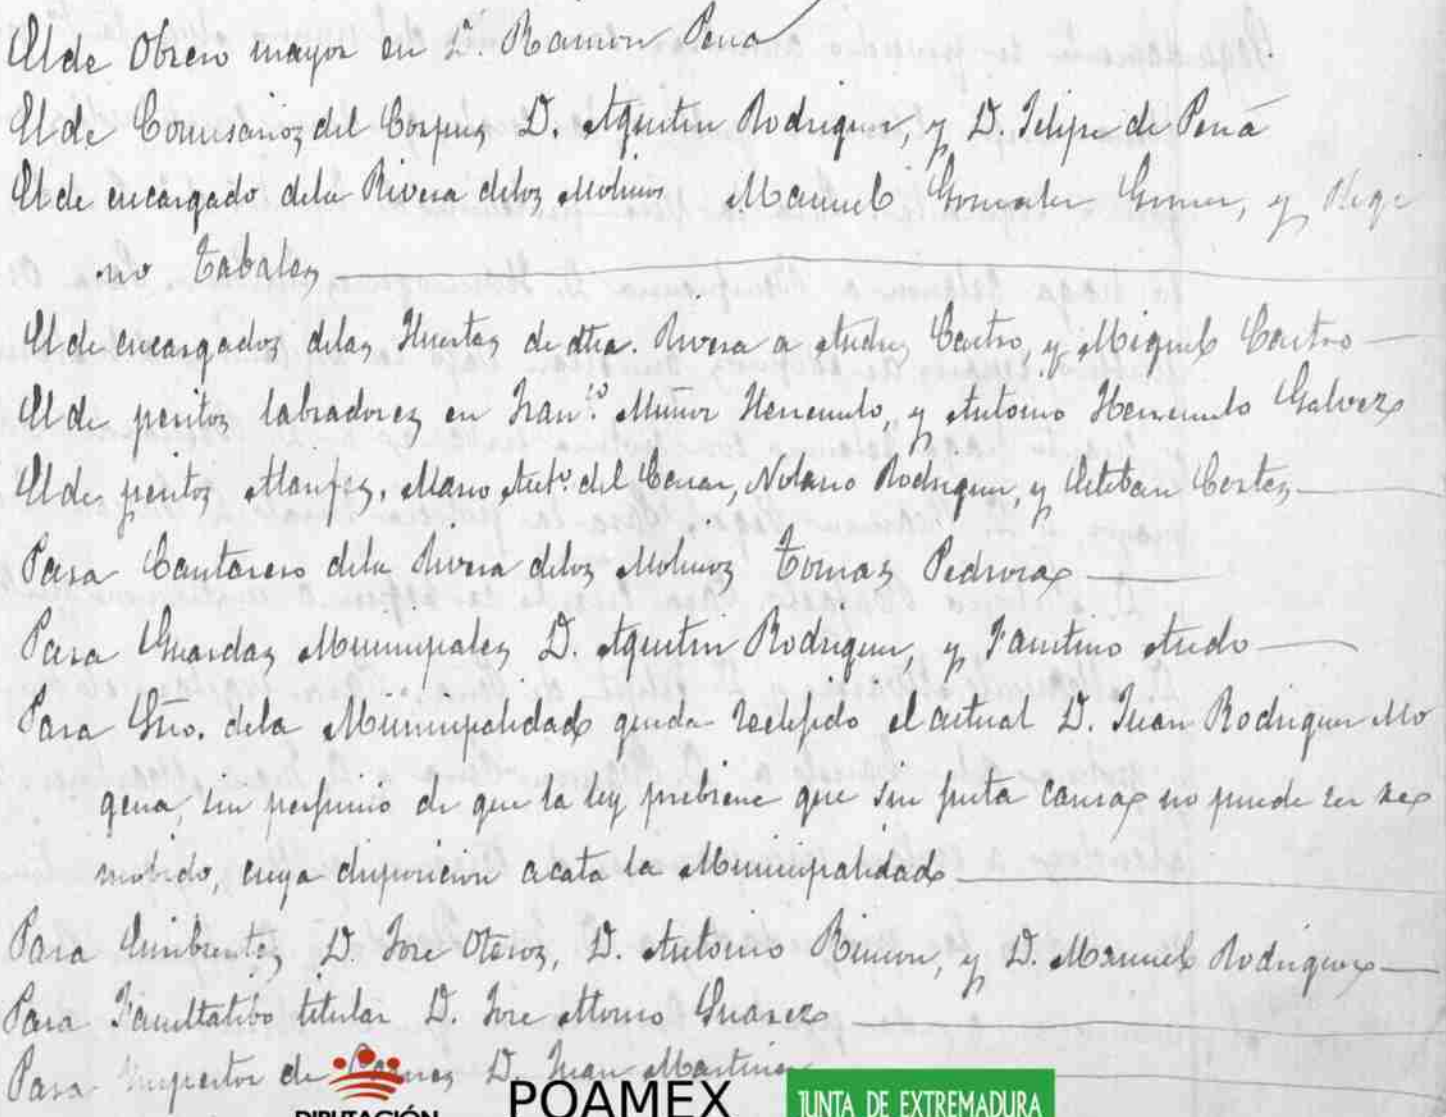 El de Obrero mayor en D. Ramon Pena
El de Comisarios del Corpus D. Agustin Rodriguez, y D. Felipe de Pena
El de encargado dela Rivera delos Molinos Manuel Gonzalez Gomez, y
no Tabales
El de encargados delas Huertas de dha. Rivera a Andres Castro, y Miguel Castro
El de peritos labradores en Fran.co Muñoz Merenulo, y Antonio Galvez
El de peritos Alarifes, Mario Ant.o del Rodriguez, y Esteban Cortes
Para Cantarero dela Rivera delos Molinos Tomas Pedroza
Para Guardas Municipales D. Agustin Rodriguez, y Faustino Anedo
Para Srio. dela Municipalidad queda reelejido el actual D. Juan Rodriguez Mo
gena, sin perjuicio de que la ley prebiene que sin justa causa no puede ser re
mobido, cuya disposicion acata la Municipalidad
Para D. Jose Oteros, D. Antonio Rincon, y D. Manuel Rodriguez
Para Facultatibo titular D. Jose Suarez
Para Inspector de D. Juan Martinez
DIPUTACIÓN POAMEX JUNTA DE EXTREMADURA